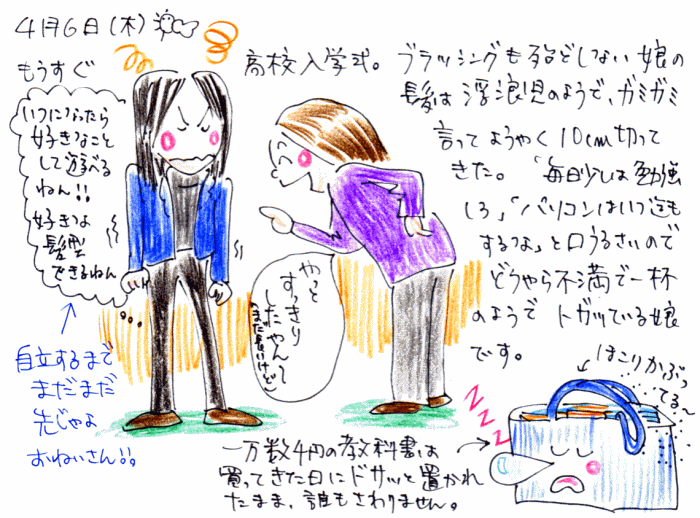 4月6日(木)
もうすぐ
高校入学式。ブラッシングも殆どしない娘の
髪は浮浪児のようで、ガミガミ
言ってようやく10cm切って
きた。「毎日少しは勉強
しろ」「パソコンはいつまでも
するな」と口うるさいので
どうやら不満で一杯
のようで トガッている娘
です。
いつになったら
好きなこと
して遊べる
ねん!!
好きな
髪型
できるねん
自立するまで
まだまだ
先じゃよ
おねいさん!!
やっと
すっきり
したやんて
(まだ長いけど)
ほこりかぶっ
てる～
ZZZ
一万数千円の教科書は
買ってきた日にドサッと置かれ
たまま、誰もさわりません。